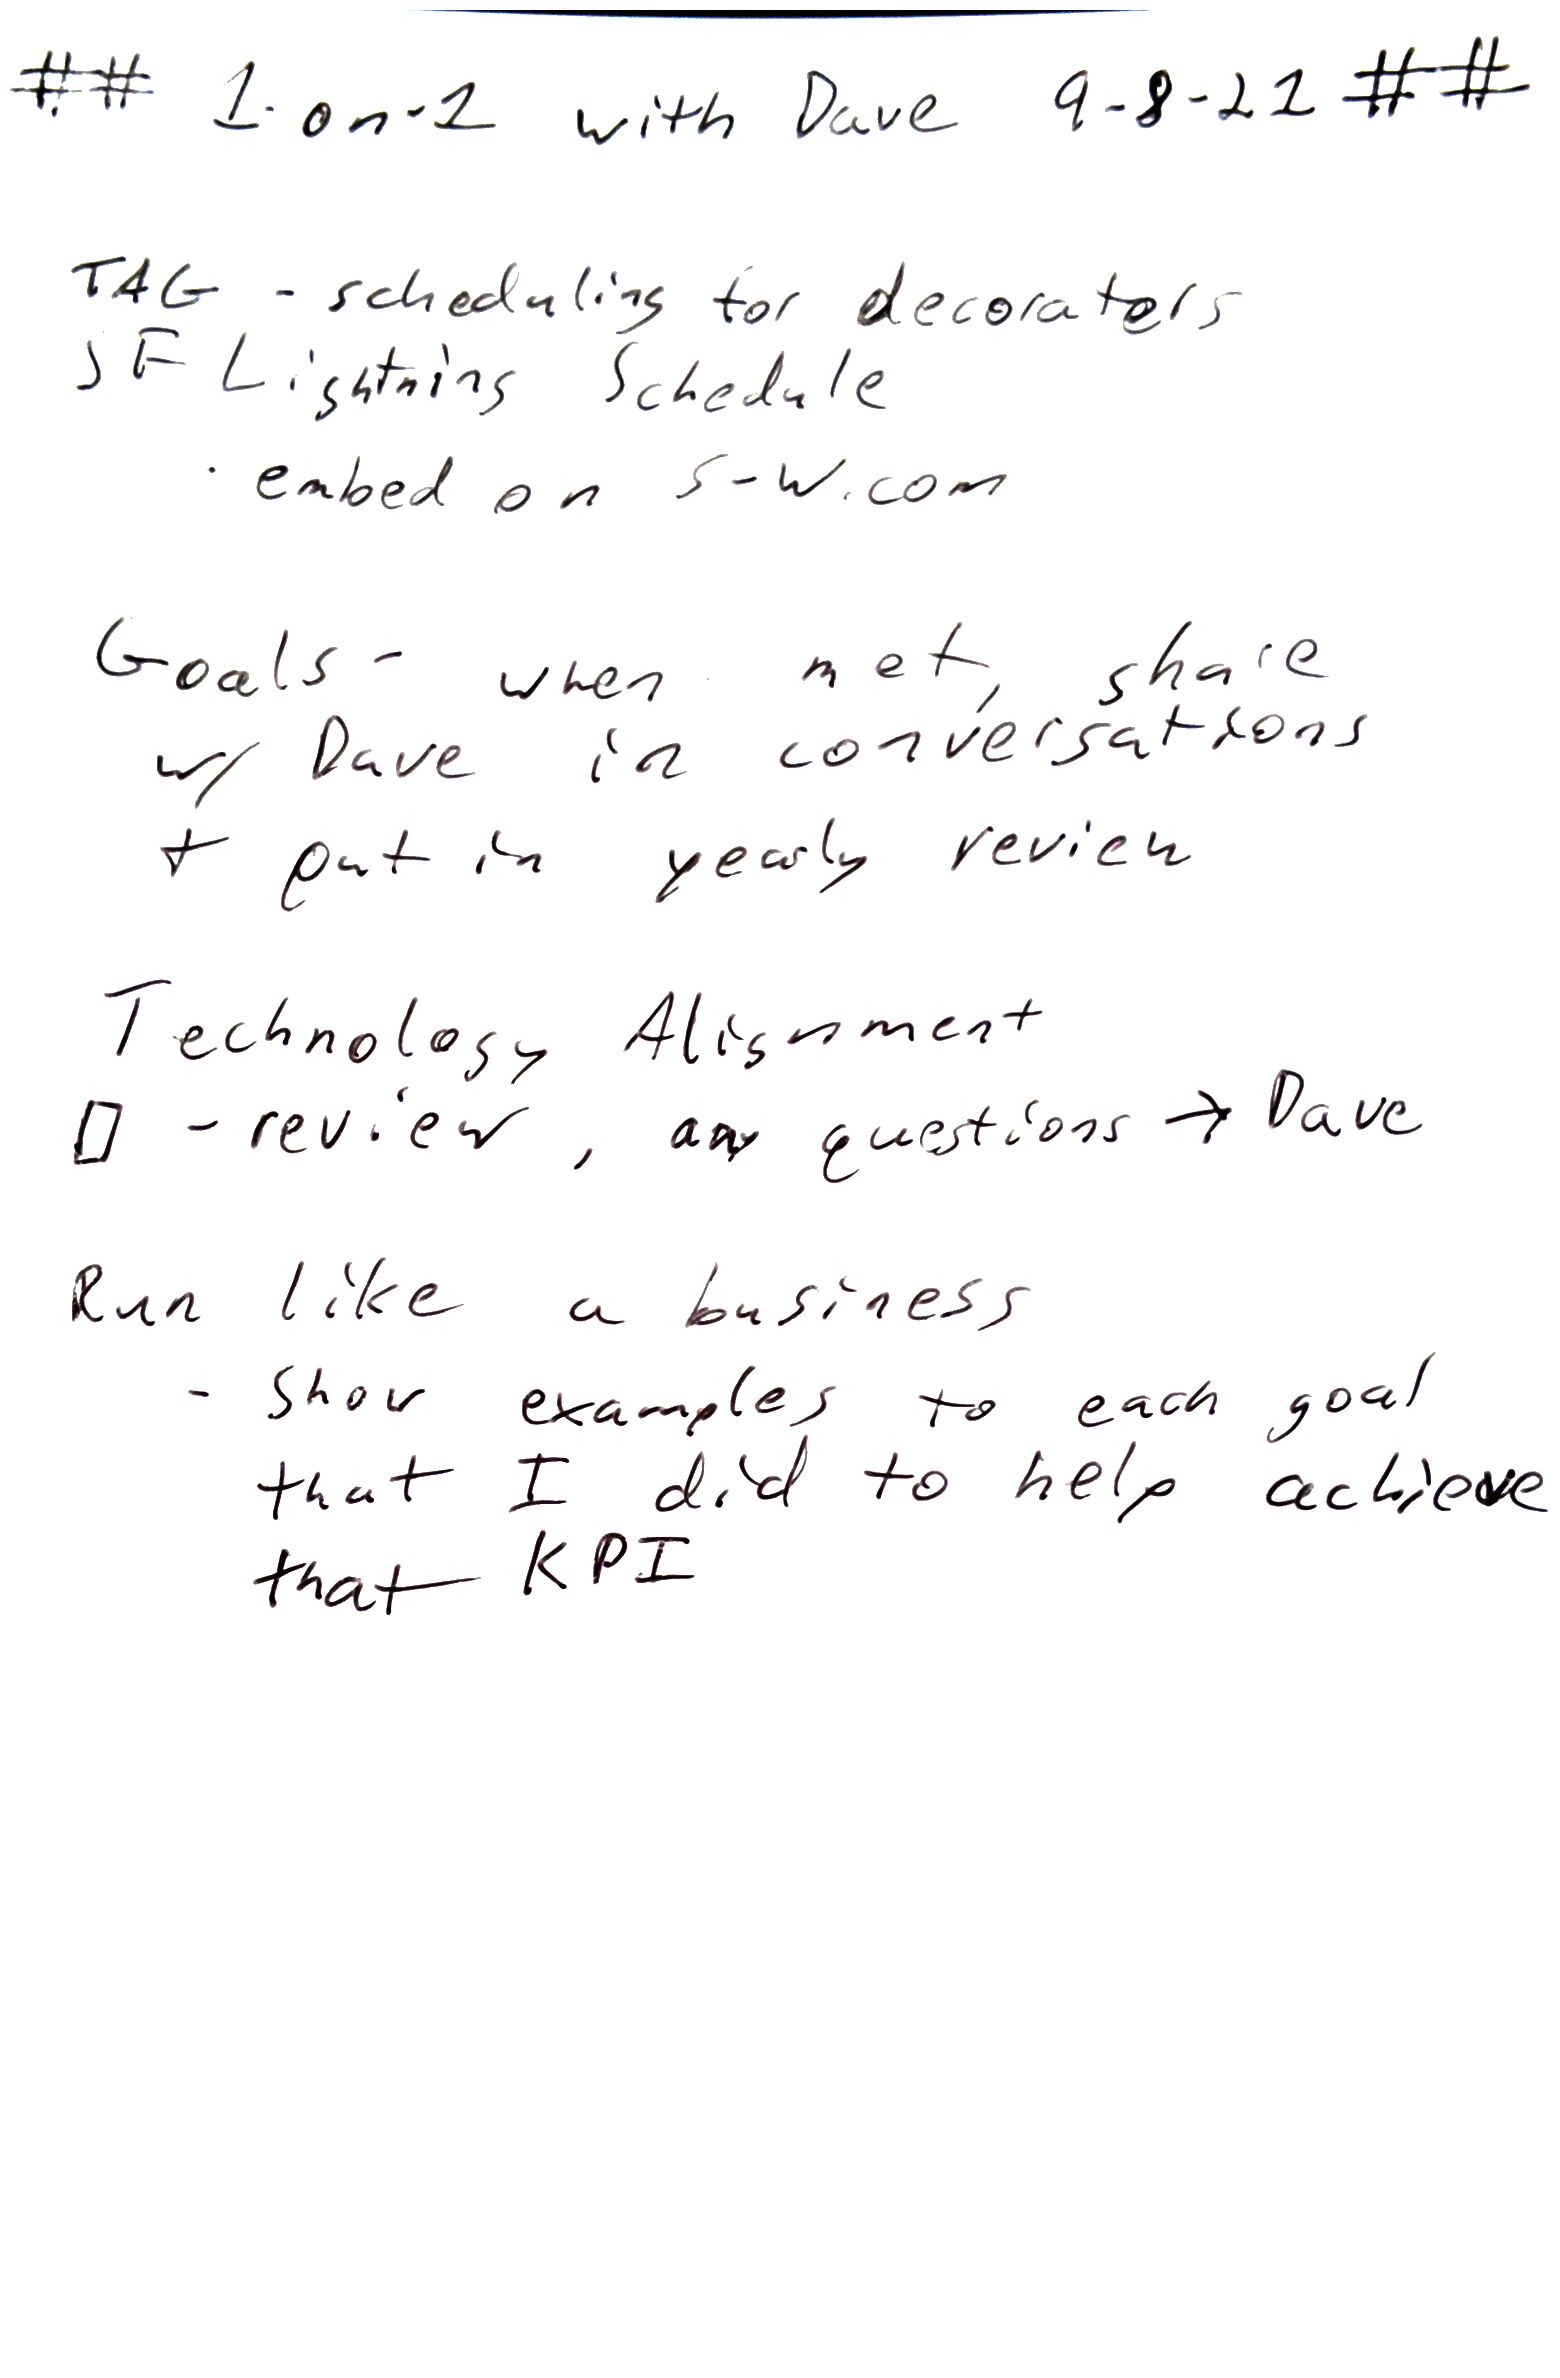 ## 1-on-1 with Dave 9-8-22 ##
TAG - scheduling for decorators
SF Lightning Schedule
· embed on S-W.com
Goals - when met, share
w/ Dave in conversations
+ put in yearly review
Technology Alignment
☐ - review, any questions → Dave
Run like a business
- Show examples to each goal
that I did to help achieve
that KPI